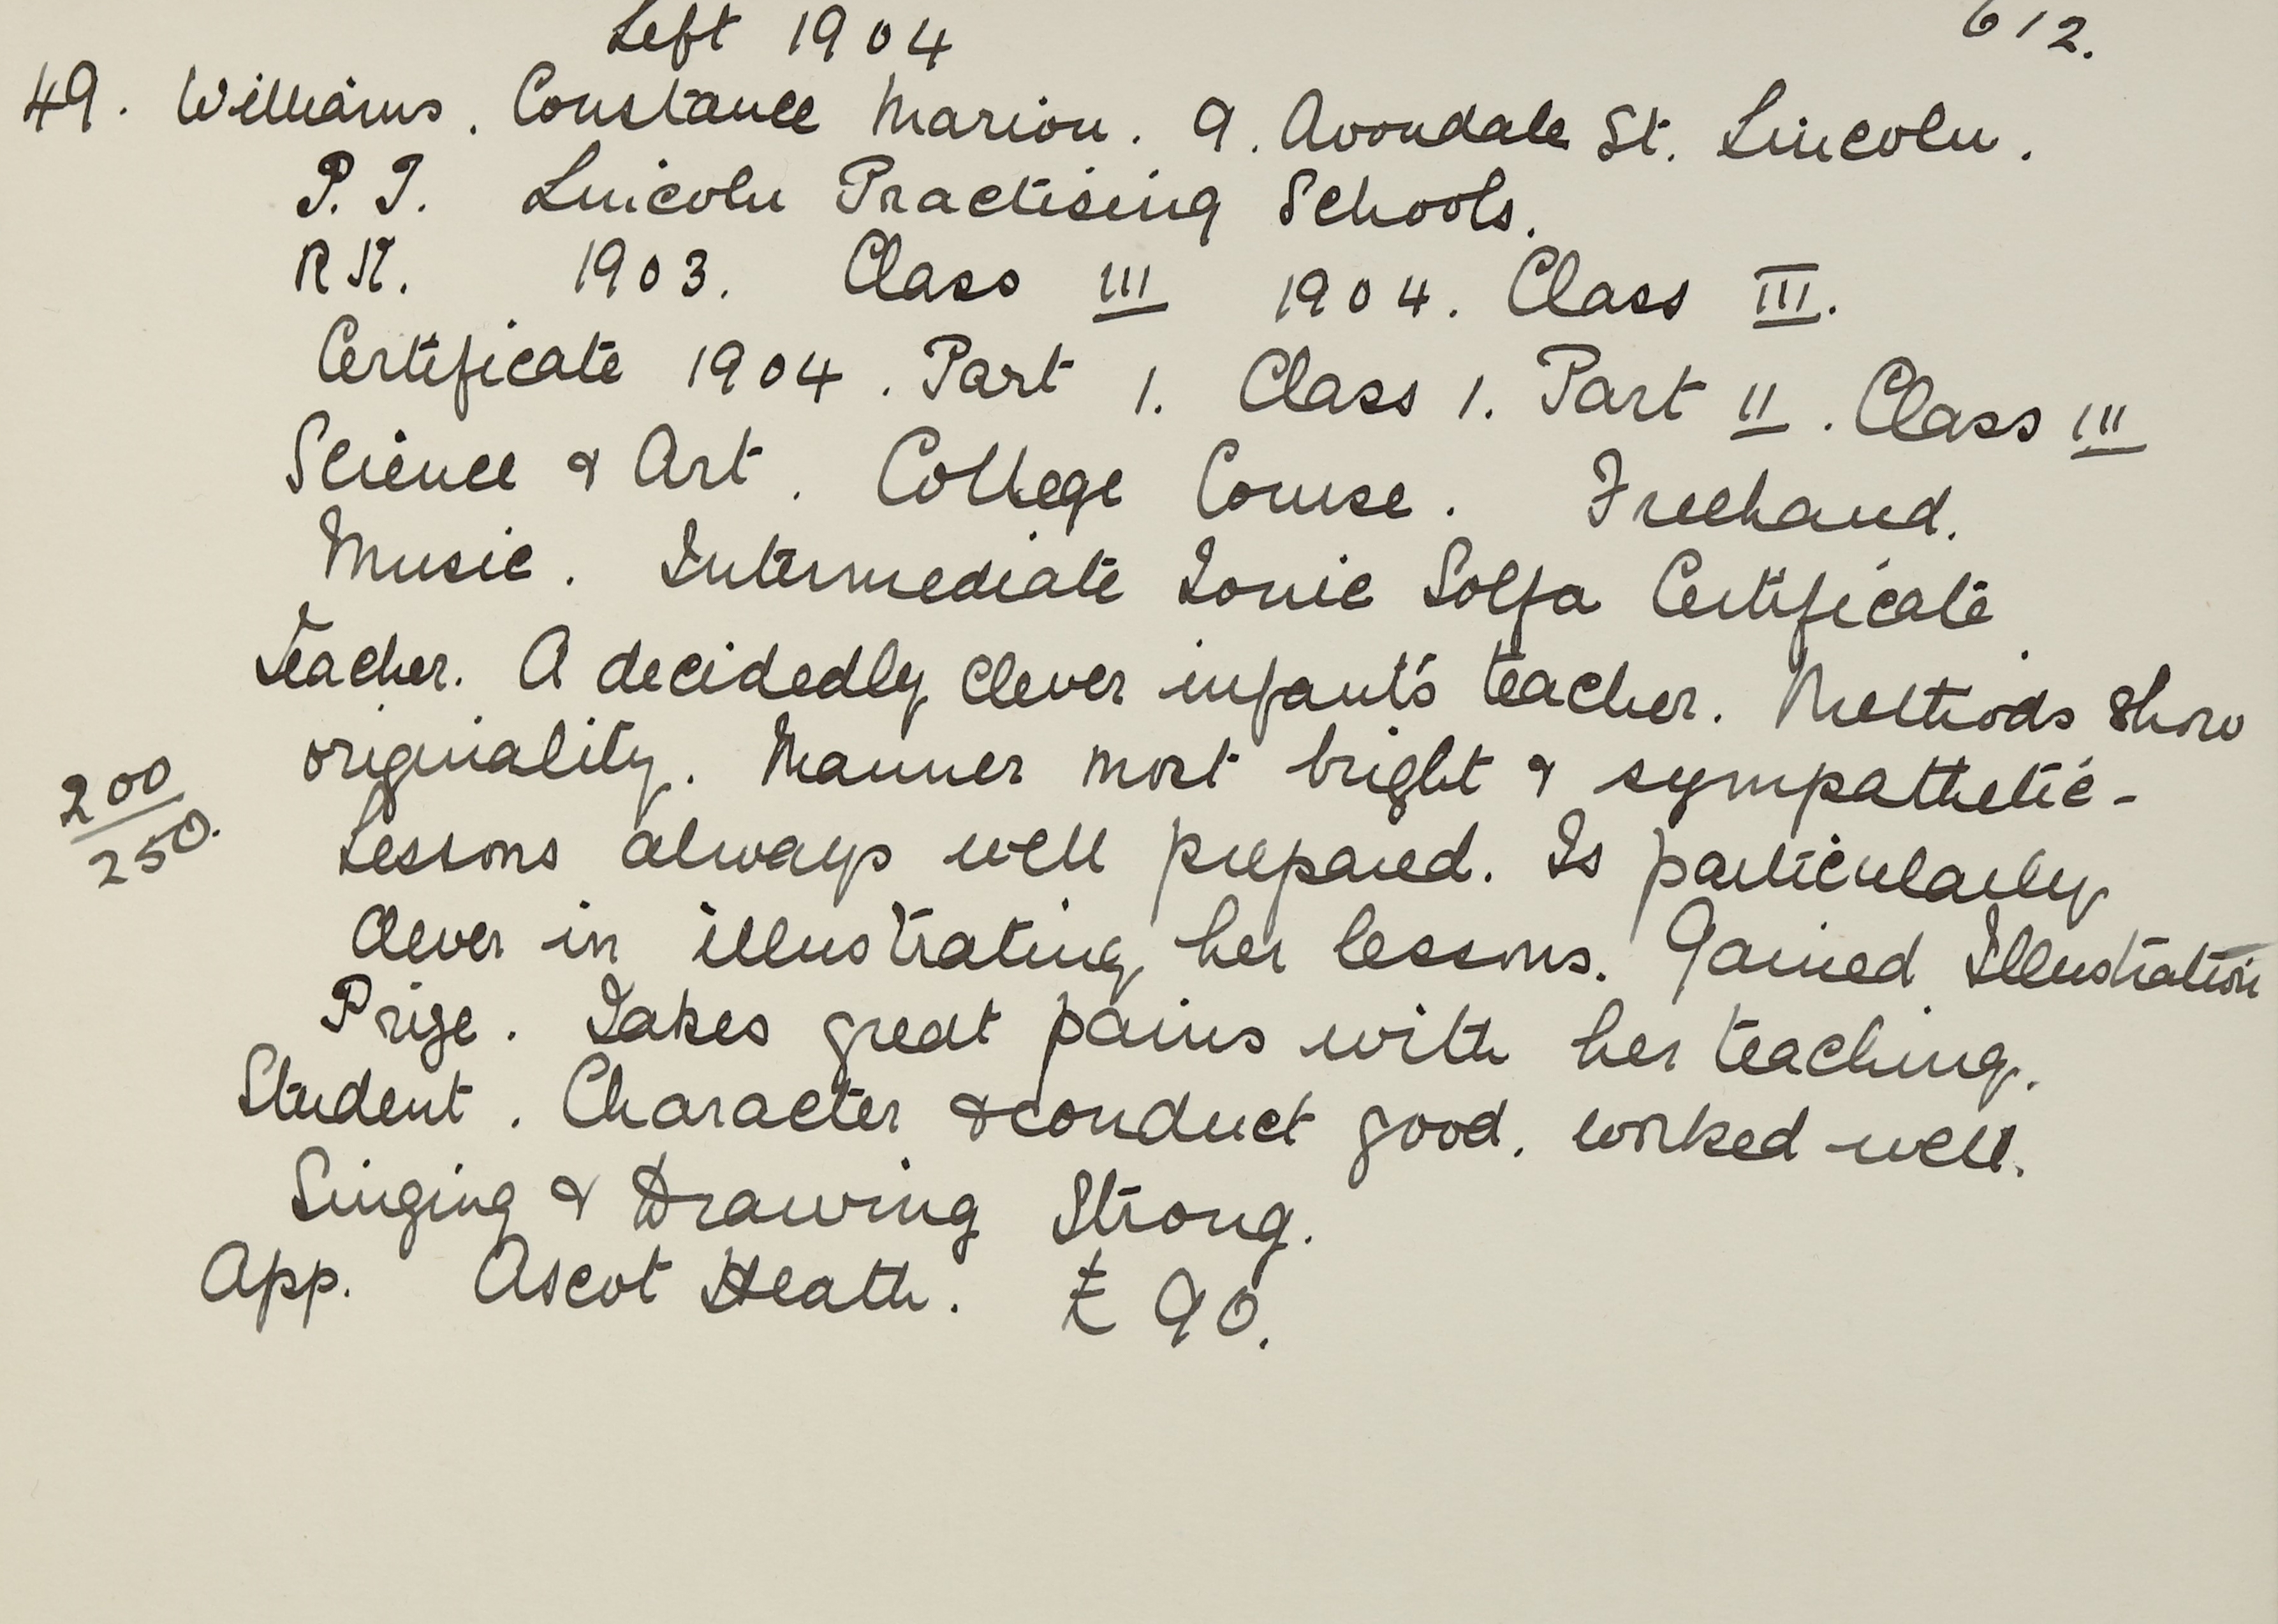 Left 1904
612.
49. Williams. Constance Marion. 9. Avondale St. Lincoln.
P.T. Lincoln Practising Schools.
R.K. 1903. Class III 1904. Class III.
Certificate 1904. Part 1. Class 1. Part II. Class III
Science & Art. College Course. Freehand.
Music. Intermediate Tonic Solfa Certificate
Teacher. A decidedly clever infants teacher. Methods show
originality. Manner most bright & sympathetic -
200/250.
Lessons always well prepared. Is particularly
clever in illustrating her lessons. Gained Illustration
Prize. Takes great pains with her teaching.
Student. Character & conduct good. worked well.
Singing & Drawing Strong.
App. Ascot Heath. £90.